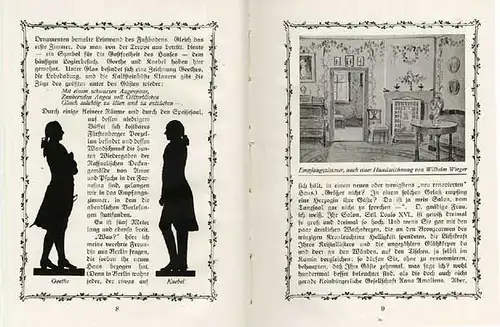 Ornamenten bemalte Leinwand des Fußbodens. Gleich das
erste Zimmer, das man von der Treppe aus betritt, diente
— ein Symbol für die Gastfreiheit des Hauses — dem
häufigen Logierbesuch. Goethe und Knebel haben hier
gewohnt. Unter Glas befindet sich eine Zeichnung Goethes,
die Ledebadung, und die Kalksteinbüste Klauers gibt die
Züge des größten unter den Gästen wieder:
Mit einem schwarzen Augenpaar,
Zaubernden Augen voll Götterblicken
Gleich mächtig zu töten und zu entzücken —
Durch einige kleinere Räume und durch den Speisesaal,
auf dessen niedrigem
Büffet sich kostbares
Fürstenberger Porzel-
lan befindet und dessen
Wandschmuck die bun-
ten Wiedergaben der
Raffaelischen Decken-
gemälde von Amor
und Psyche in der Far-
nesina sind, gelangen
wir in das Empfangs-
zimmer, in dem die
abendlichen Vorlesun-
gen stattfinden.
Es ist fünf Meter
lang und ebenso breit.
„Was?" höre ich
meine verehrte Freun-
din aus Berlin fragen,
die soeben ihr neues
Haus bezogen hat.
(Denn in Berlin wohnt
jeder, der etwas auf
Goethe
Knebel
8
Empfangszimmer, nach einer Handzeichnung von Wilhelm Wieger
sich hält, in einem neuen oder wenigstens „neu renovierten"
Haus). „Größer nicht? In einem solchen Gelaß empfing
eine Herzogin ihre Gäste? Da ist ja mein Salon, vom
Tanzsaal gar nicht zu sprechen —". O, gnädige Frau,
ich weiß. Ihr Salon, Stil Louis XVI., ist gewiß dreimal
so groß und dreimal so hoch. Und wenn Sie gar mit den
paar ärmlichen Wachskerzen, die an den Bronzearmen des
winzigen Kronleuchters Helligkeit spendeten, die Lichtkraft
Ihres Kristallüsters und die ungezählten Glühkörper da
und dort an den Wänden, auf den Tischen, ja selbst im
Kamin vergleichen: so dürfen Sie, ohne zu renommieren,
behaupten, daß Ihre Gäste zehnmal, was sage ich? wohl
hundertmal besser beleuchtet sind, als die doch auch nicht
gerade kleinbürgerliche Gesellschaft Anna Amaliens. Aber,
9